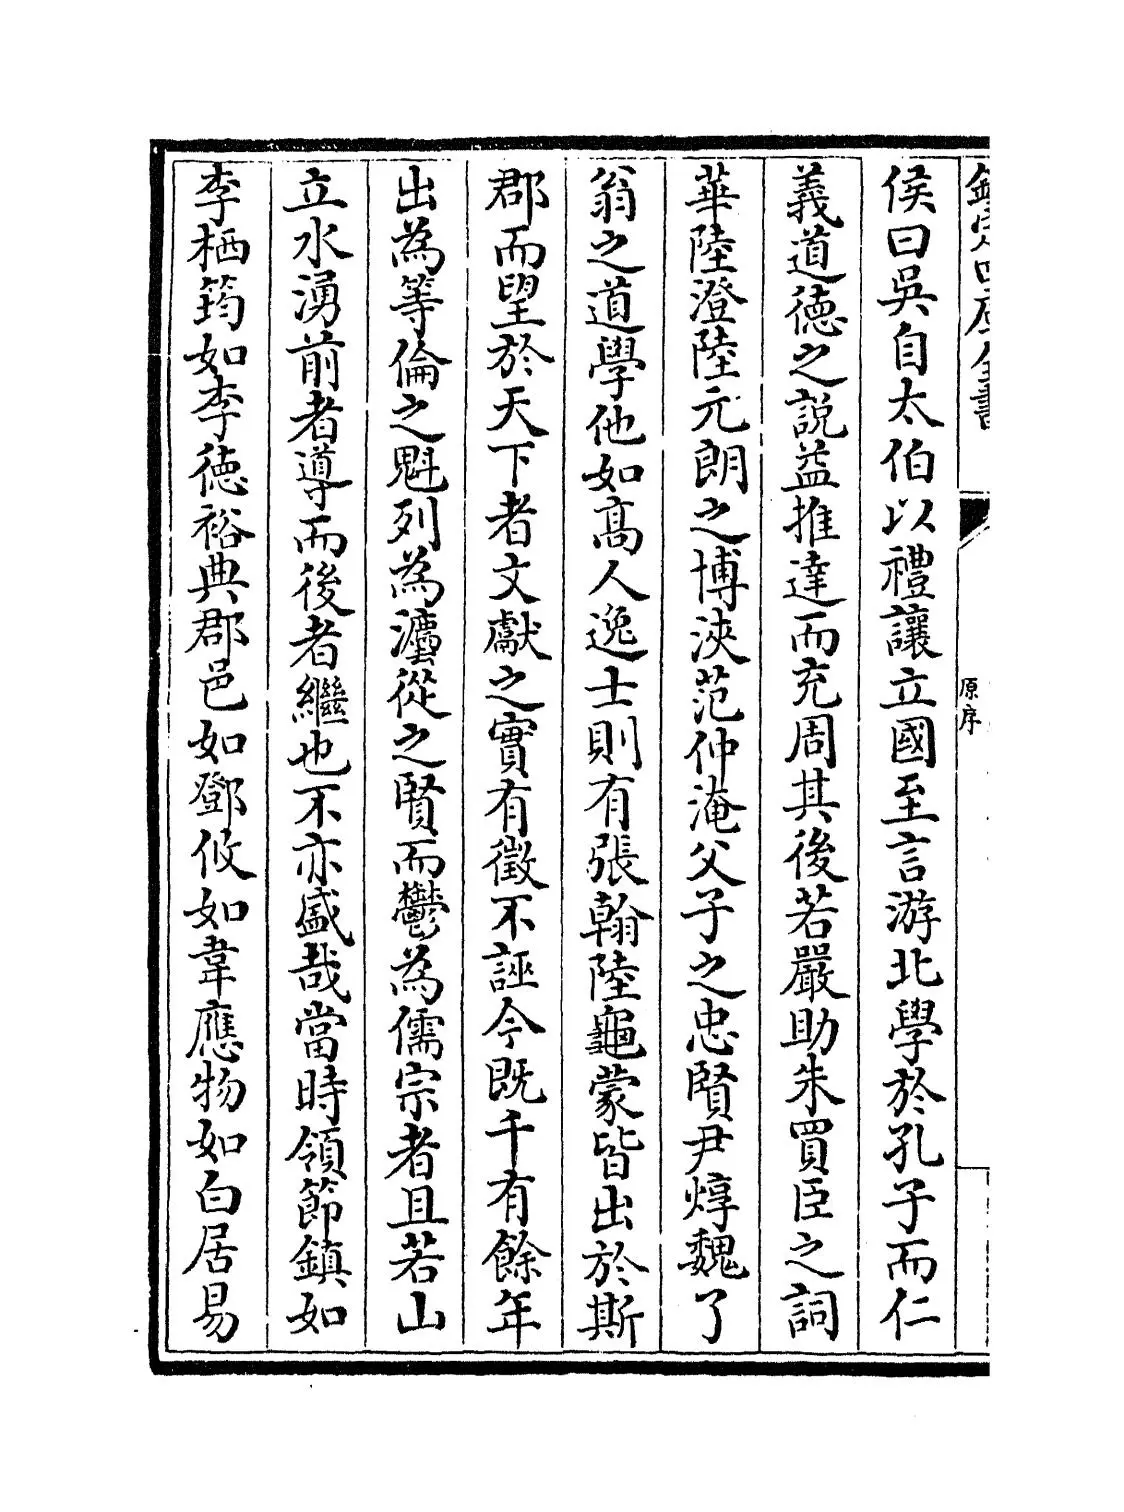 欽定四庫全書
原序
侯曰吳自太伯以禮讓立國至言游北學於孔子而仁
義道徳之說益推達而充周其後若嚴助朱買臣之詞
華陸澄陸元朗之博浹范仲淹父子之忠賢尹焞魏了
翁之道學他如髙人逸士則有張翰陸龜蒙皆出於斯
郡而望於天下者文獻之實有徵不誣今既千有餘年
出為等倫之魁列為灋從之賢而鬱為儒宗者且若山
立水湧前者導而後者繼也不亦盛哉當時領節鎮如
李栖筠如李徳裕典郡邑如鄧攸如韋應物如白居易